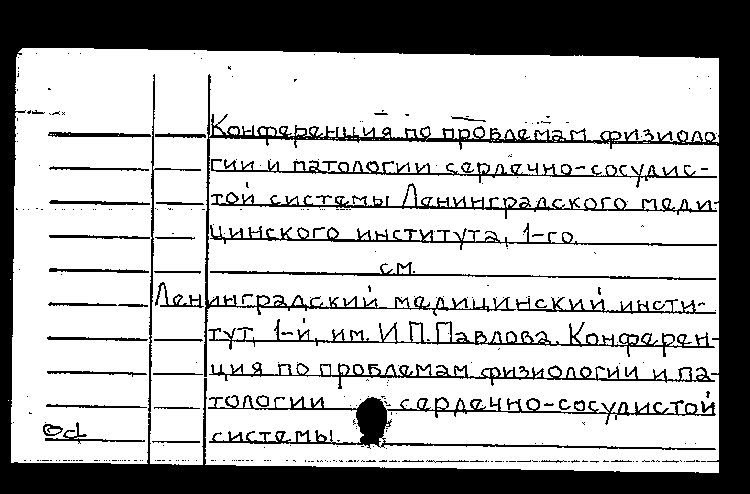 Конференция по проблемам физиоло
гии и патологии сердечно-сосудис-
той системы Ленинградского меди-
цинского института, 1-го.
см.
Ленинградский медицинский инсти-
тут, 1-й, им. И.П.Павлова. Конферен-
ция по проблемам физиологии и па-
тологии сердечно-сосудистой
системы.